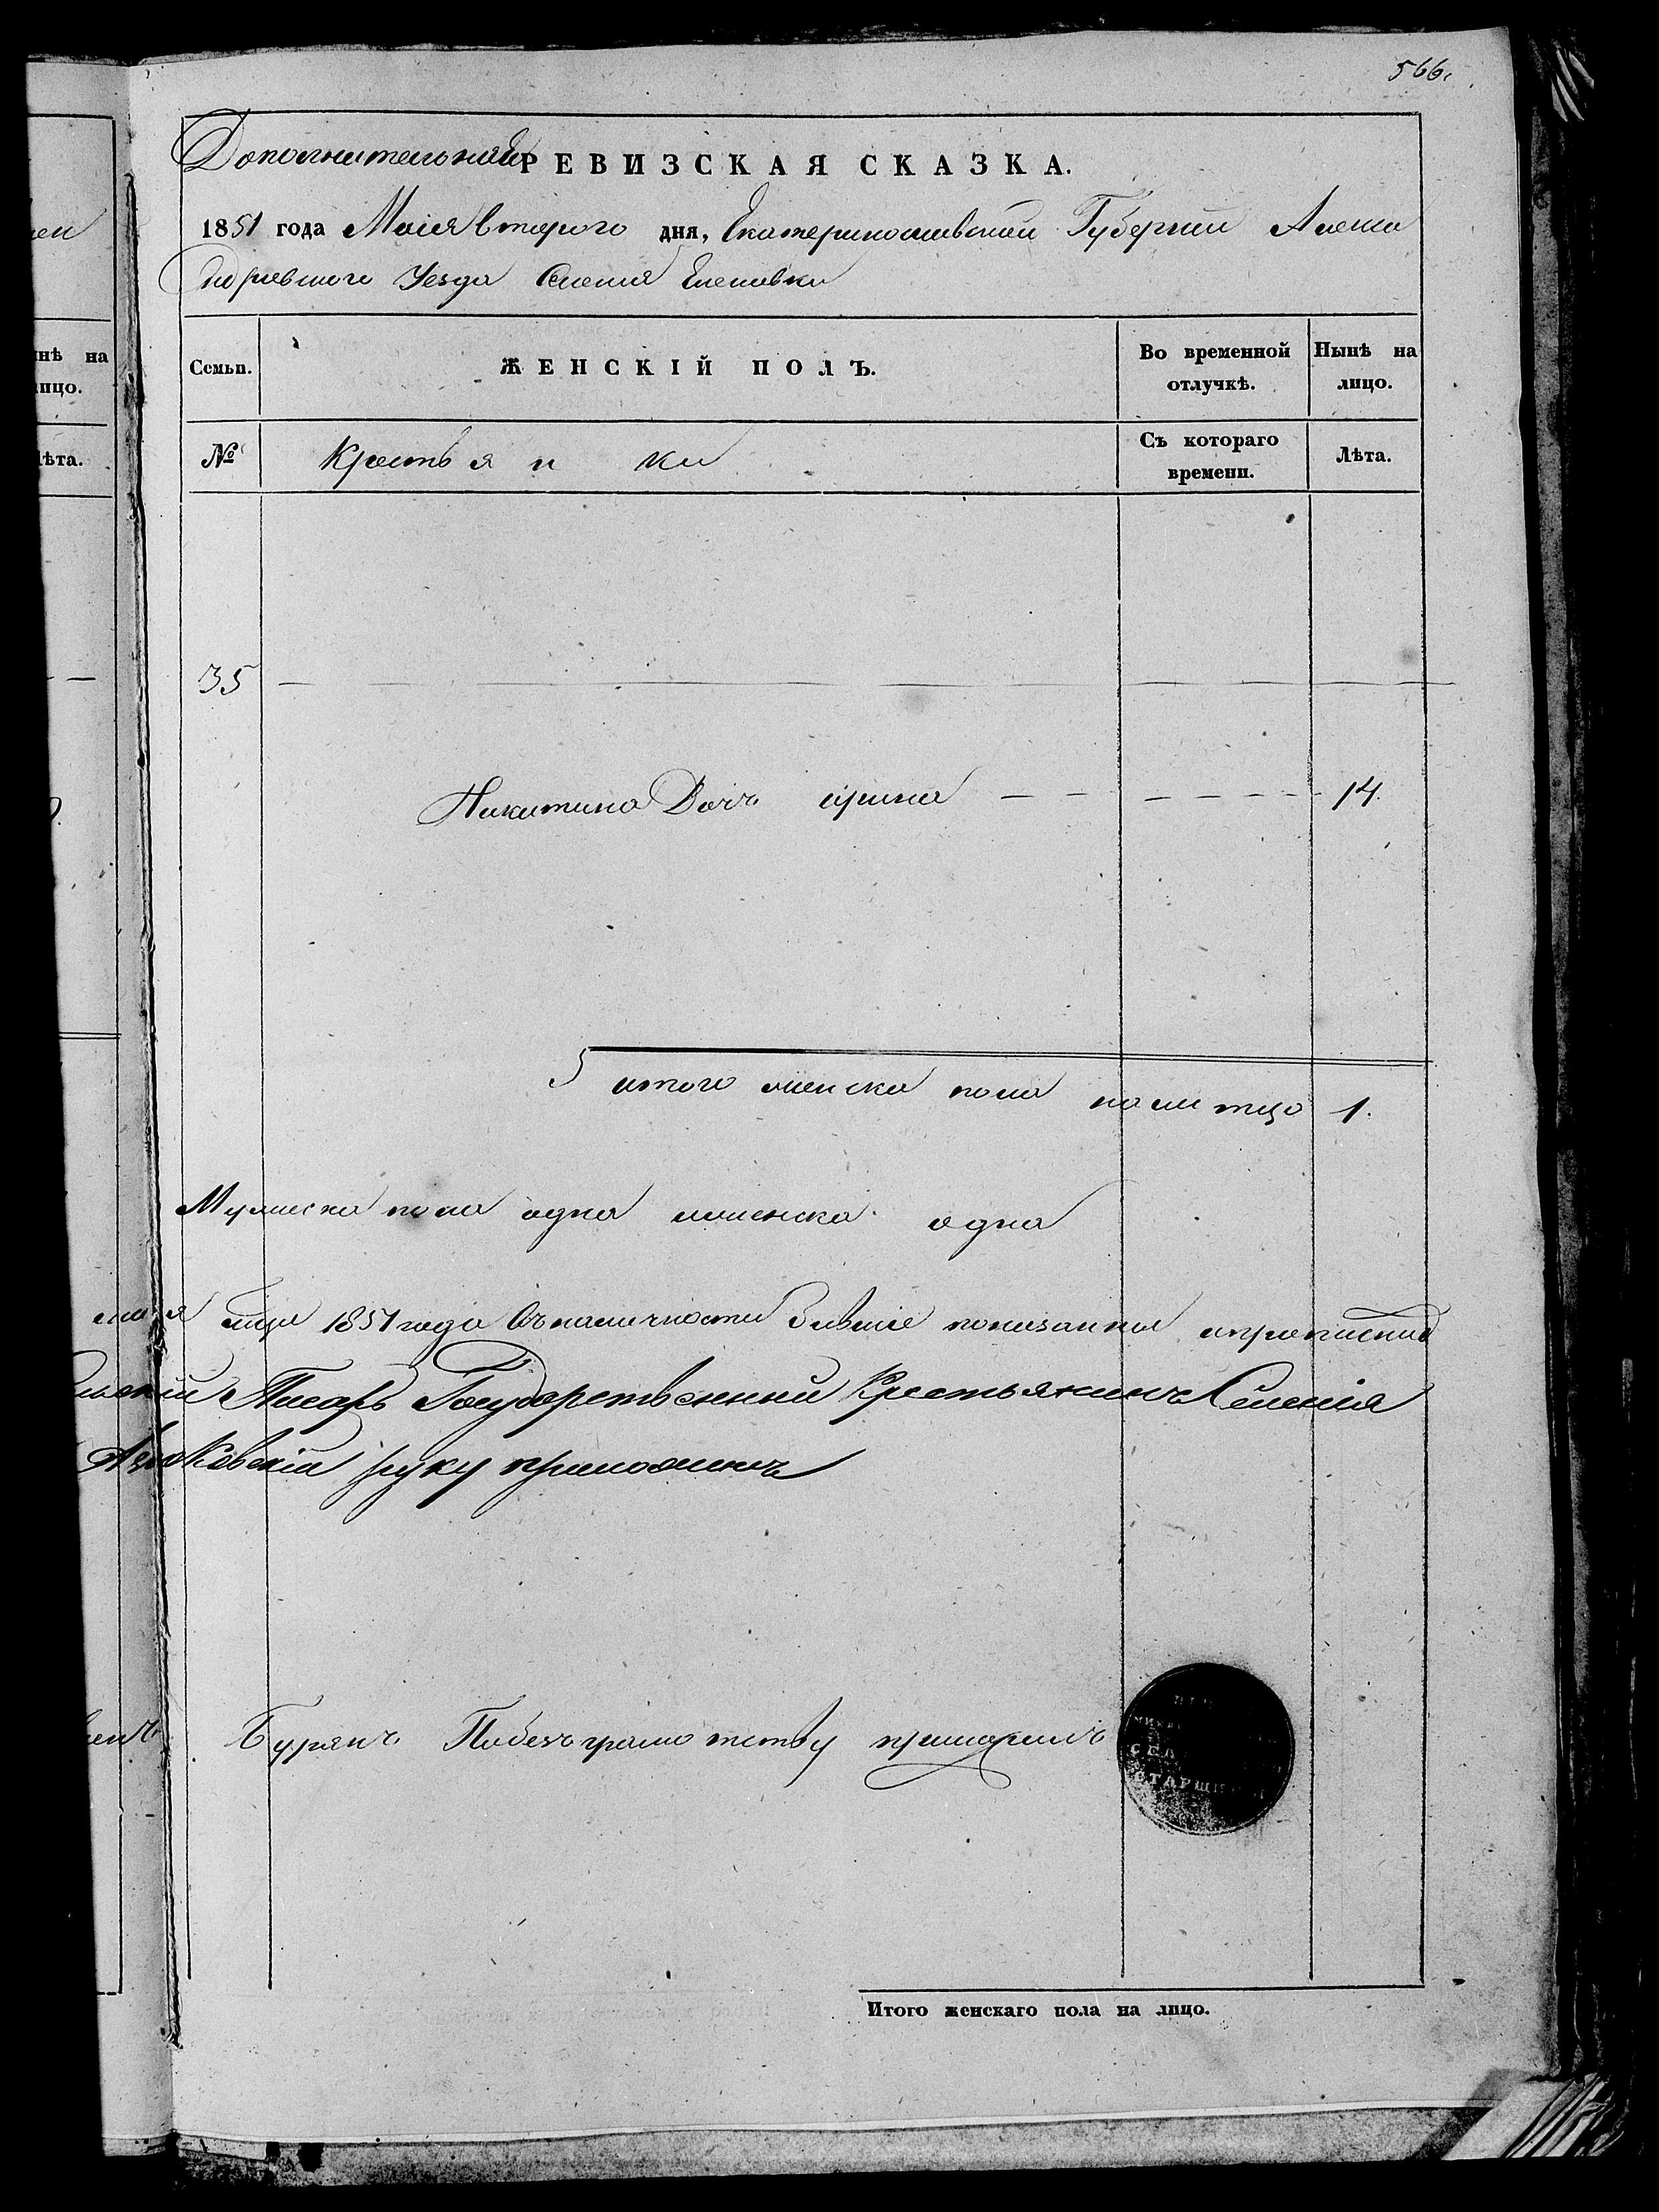 566.
Дополнительная РЕВИЗСКАЯ СКАЗКА.
1851 года Маія второго дня, Екатеринославской Губерніи Алексан
дровского Уезда Селенія Еленовки
Семьи. ЖЕНСКІЙ ПОЛЪ. Во временной отлучкѣ. Нынѣ на лицо.
№ Крестьянки Съ котораго времени. Лѣта.
35
Никитина Дочь ирина 14.
итого женска пола на лицо 1.
Мужеска пола одна женска одна
мая 1851 года въ наличности показанны
Писарь Государственний Крестьянинъ Селенія
руку приложилъ
Бурянъ Побезграмотству приложилъ
СЕЛ
СТАРШ
Итого женскаго пола на лицо.
нѣ на
лицо.
лѣта.